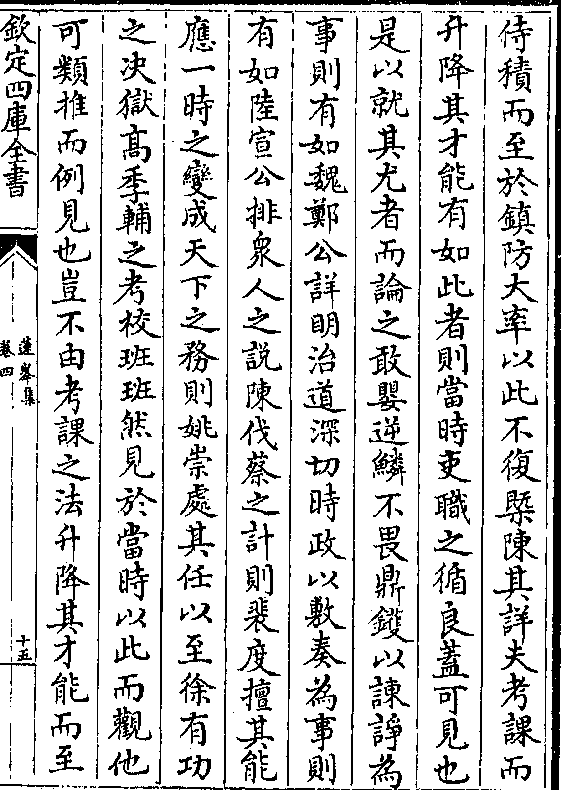 侍積而至於鎮防大率以此不復槩陳其詳夫考課而
升降其才能有如此者則當時吏職之循良蓋可見也
是以就其尤者而論之敢嬰逆鱗不畏鼎鑊以諫諍為
事則有如魏鄭公詳明治道深切時政以敷奏為事則
有如陸宣公排衆人之說陳伐蔡之計則裴度擅其能
應一時之變成天下之務則姚崇處其任以至徐有功
之決獄髙季輔之考校班班然見於當時以此而觀他
可類推而例見也豈不由考課之法升降其才能而至
欽定四庫全書
蓮峯集
卷四
十五